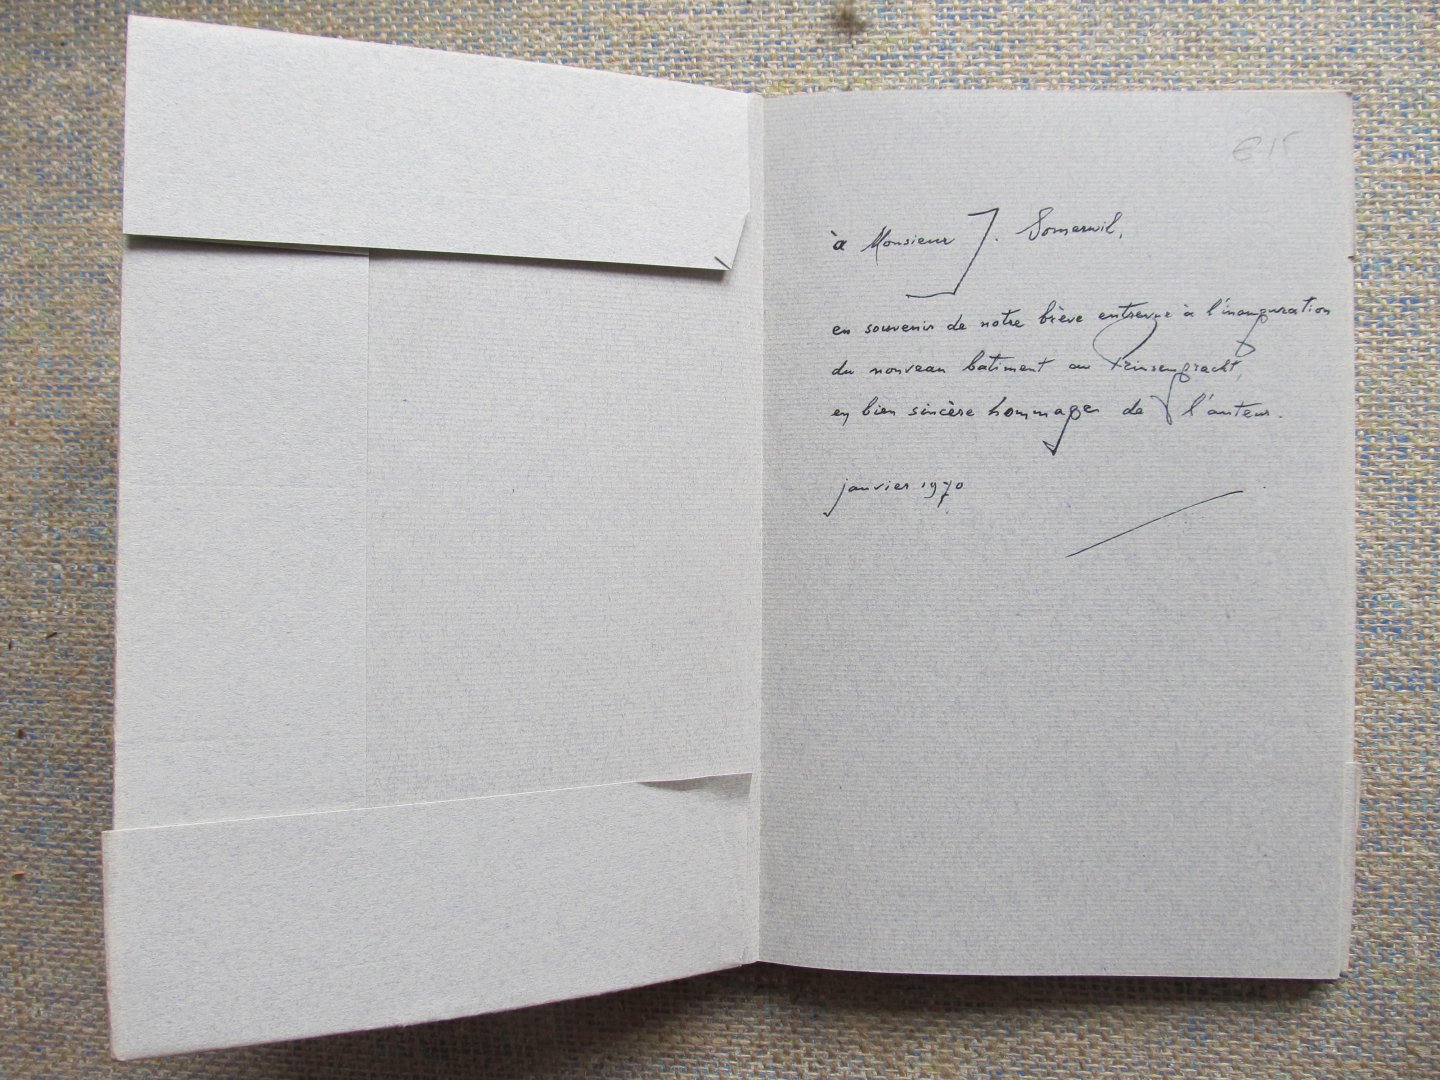 € 15
à Monsieur J. Somerwil,
en souvenir de notre brève entrevue à l'inauguration
du nouveau batiment au Prinsengracht,
en bien sincère hommage de l'auteur.
janvier 1970